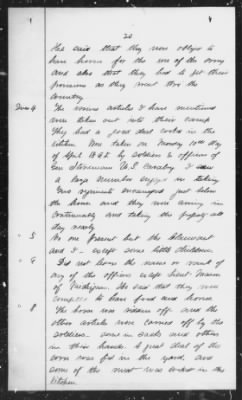 20
He said that they were obliged to
have horses for the use of the army
and also that they had to get their
provisions as they went thro the
country
Ques 4 The various articles I have mentioned
were taken out into their camp
They had a good deal cooked in the
kitchen. Was taken on Monday 10th day
of April 1865 by soldiers & officers of
Gen Stoneman U.S. Cavalry. I saw
a large number engaged in taking
One regiment encamped just below
the house and they were coming in
continually and taking the property all
day nearly
5 No one present but the Claimant
and I - except some little children
6 Did not learn the name or rank of
any of the officers except Lieut Mason
of Michigan. He said that they were
compelled to have food and horses
8 The horse was ridden off and the
other articles were carried off by the
soldiers some in sacks and others
in their hands. A great deal of the
corn was fed in the yard, and
some of the meat was cooked in the
kitchen